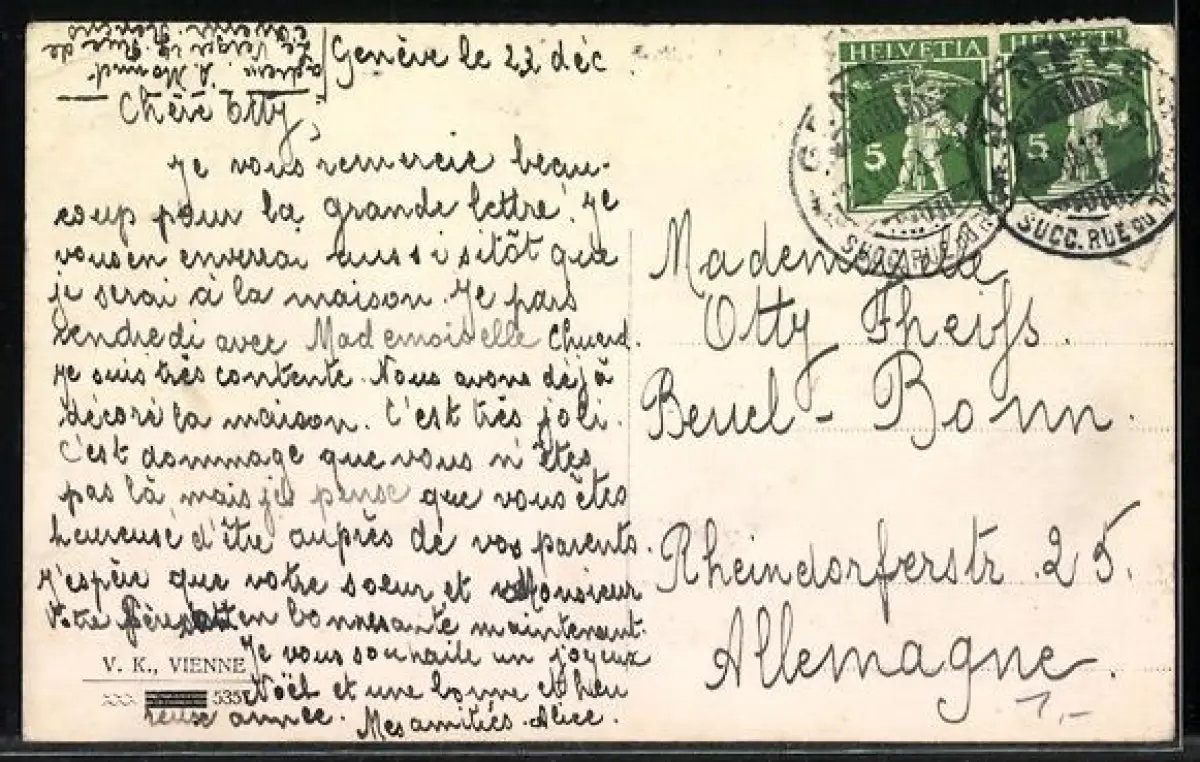 Genève le 22 déc.
Chère Otty,
Je vous remercie beau-
coup pour la grande lettre. Je
vous en enverrai aussi sitôt que
je serai à la maison. Je pars
vendredi avec Mademoiselle
Je suis très contente. Nous avons déjà
décoré la maison. C'est très joli.
C'est dommage que vous n'êtes
pas là mais je pense que vous êtes
heureuse d'être auprès de vos parents.
J'espère que votre soeur et Monsieur
votre père en bonne santé maintenant.
Je vous souhaite un joyeux
Noël et une bonne et heu
reuse année. Mes amitiés. Alice.
V. K., VIENNE
HELVETIA
5
HELVETI
5
SUCC. RUE DU
Mademoiselle
Otty Theifs.
Beuel - Bonn.
Rheindorferstr. 25.
Allemagne.
1,-